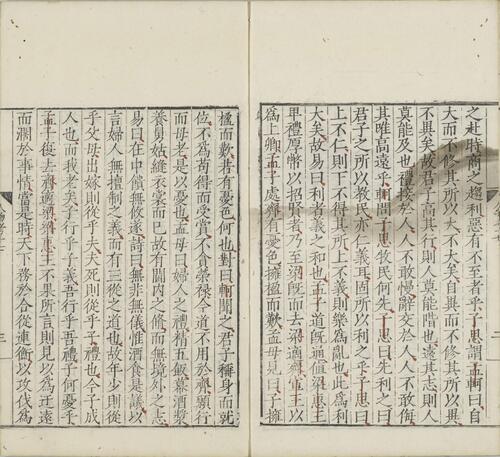 之赴時商之趨利惡有不至者乎子思謂孟軻曰自
大而不修其所以大不大矣自異而不修其所以異
不異矣故君子高其行則人莫能階也遠其志則人
莫能及也禮接於人人不敢慢辭交於人人不敢侮
其唯高遠乎軻問子思牧民何先子思曰先利之曰
君子之所以教民亦仁義耳固所以利之乎子思曰
上不仁則下不得其所上不義則樂為亂也此為利
大矣故易曰利者義之和也孟子道既通值梁惠王
卑禮厚幣以招賢者乃至梁既而去梁適齊宣王以
為上卿孟子處齊有憂色擁楹而歎孟母見曰子擁
楹而歎若有憂色何也對曰軻聞之君子稱身而就
位不為苟得而受賞不貪榮祿今道不用於齊願行
而母老是以憂也孟母曰婦人之禮精五飯羃酒漿
養舅姑縫衣裳而已故有閨內之脩而無境外之志
易曰在中饋無攸遂詩曰無非無儀惟酒食是議以
言婦人無擅制之義而有三從之道也故年少則從
乎父母出嫁則從乎夫夫死則從乎子禮也今子成
人也而我老矣子行乎子義吾行乎吾禮子何憂乎
孟子從去齊適梁梁惠王不果所言則見以為迂遠
而濶於事情當是時天下務於合從連衡以攻伐為
三